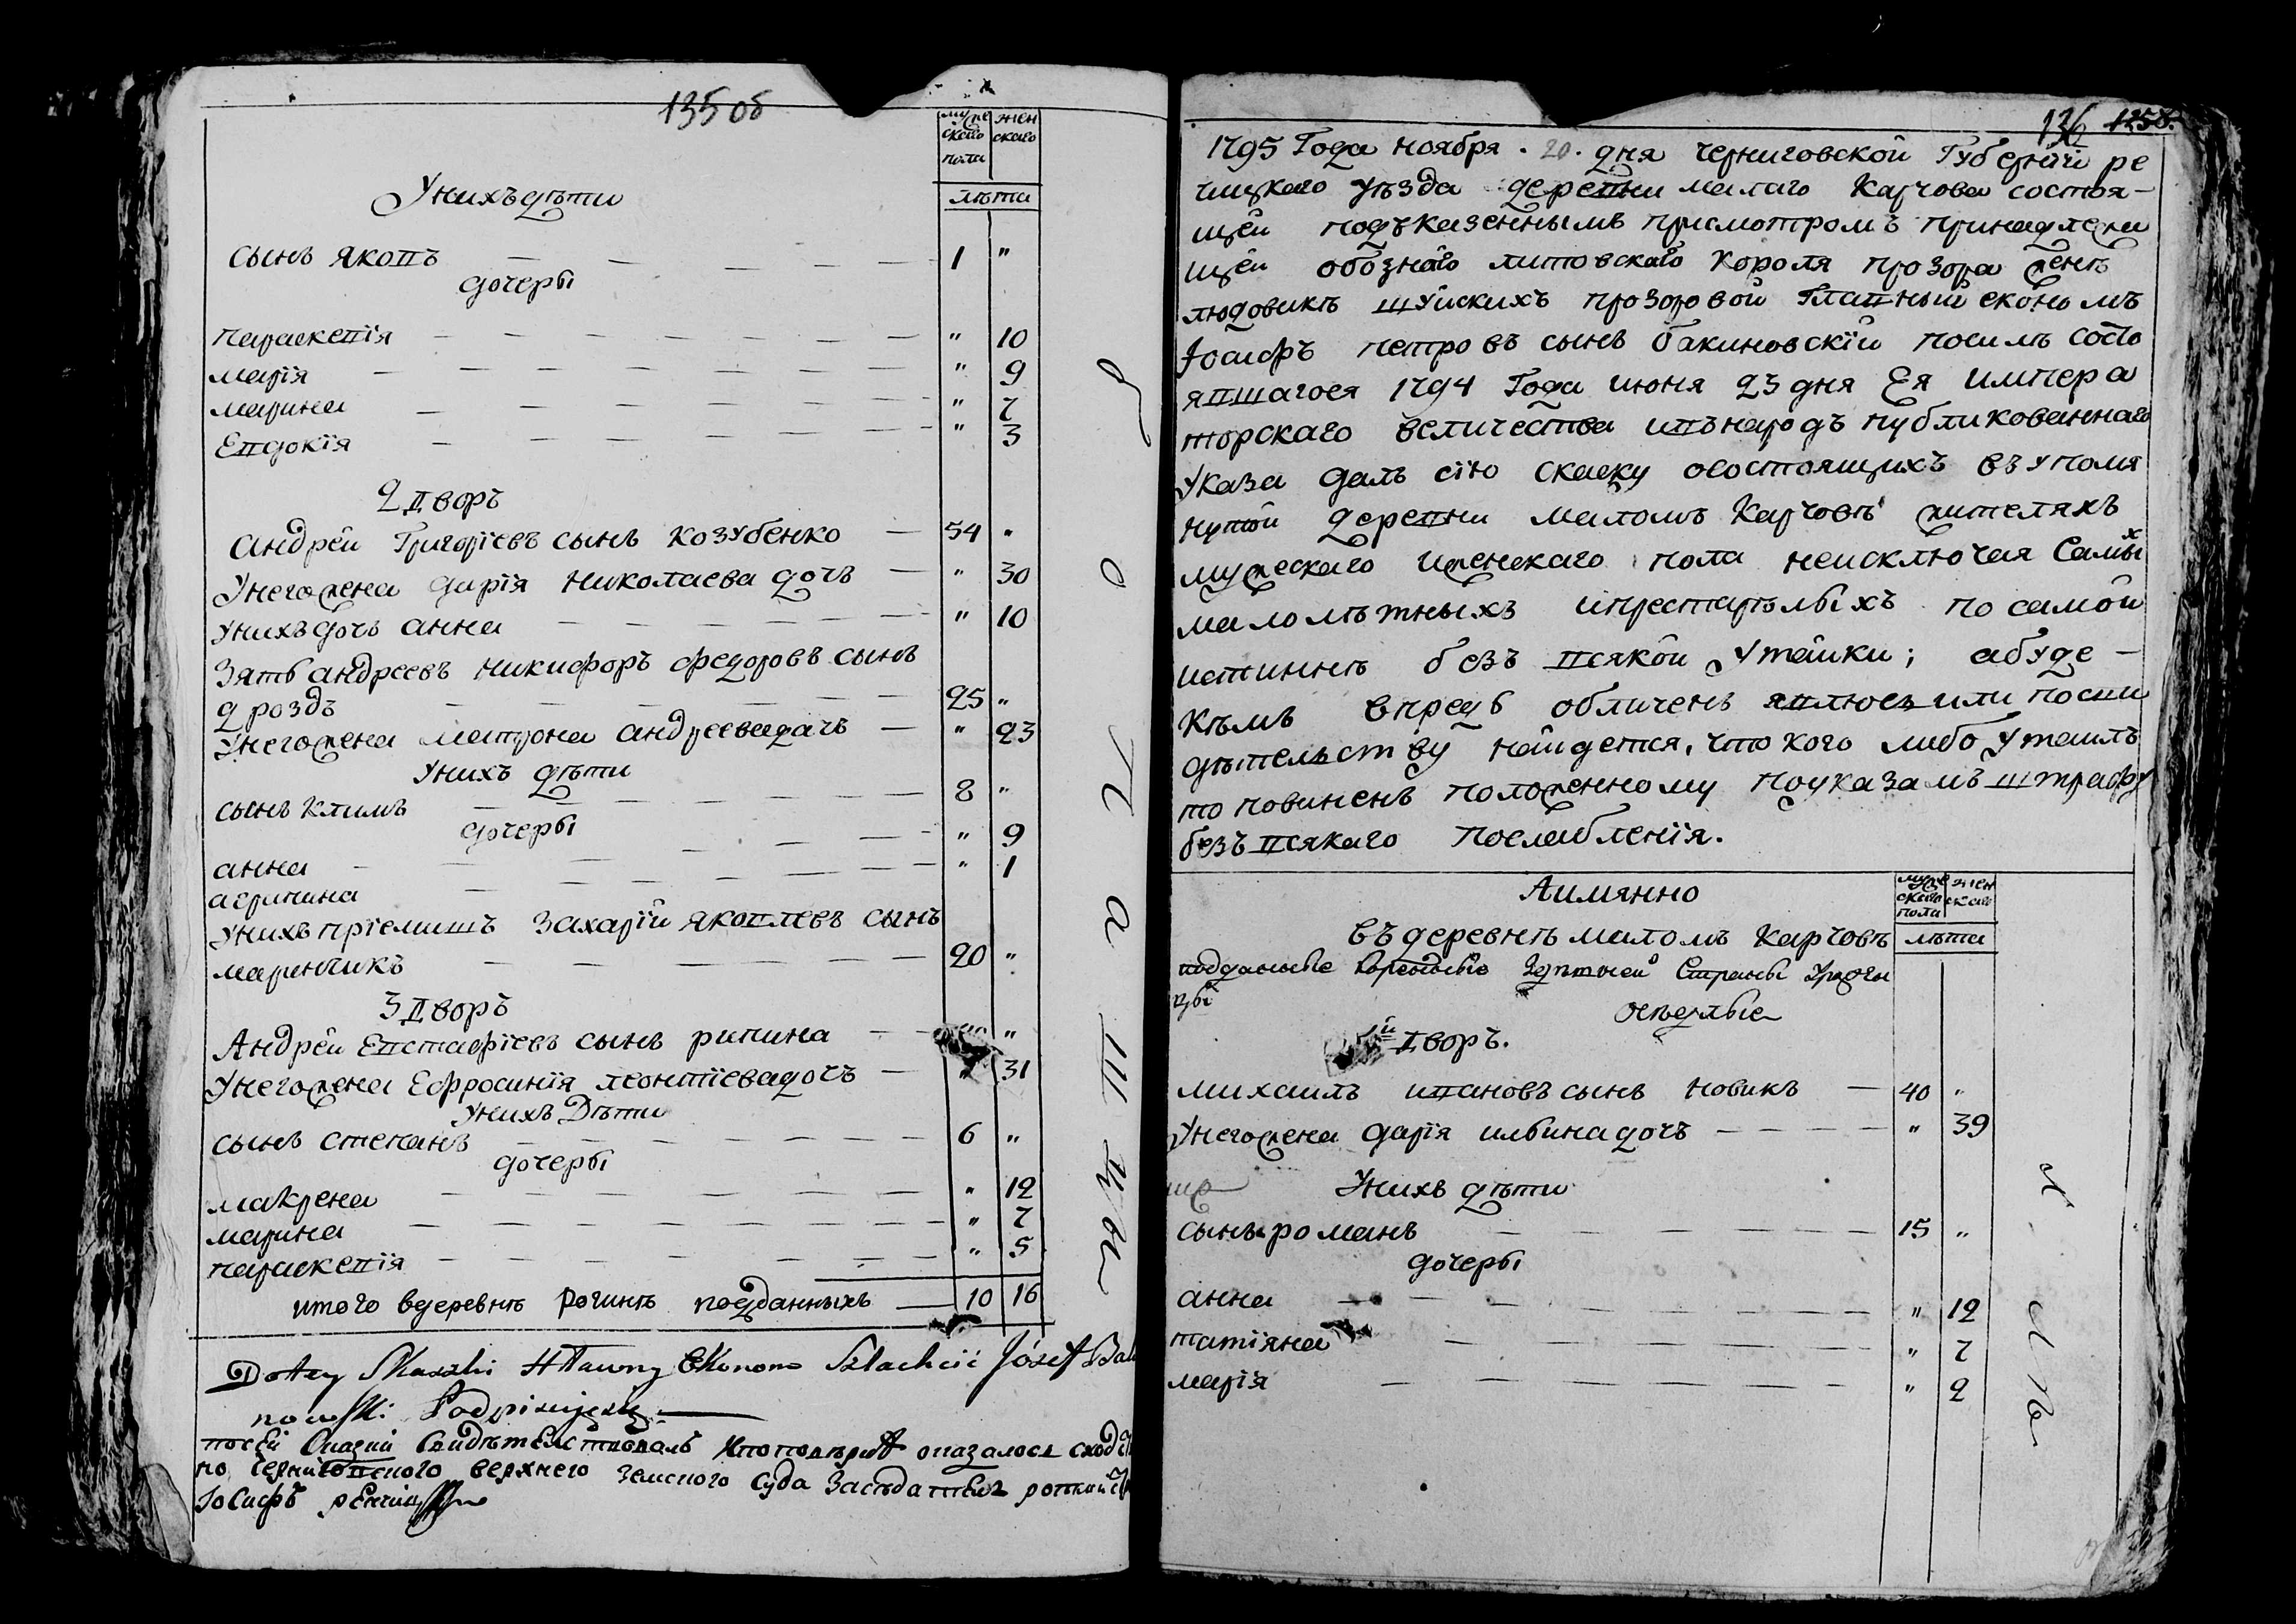 135 об
муже ского пола
жен ского
лѣта
У нихъ дѣти
сынъ яковъ — — — — — 1 "
дочеры
параскевія — — — — — " 10
марія — — — — — " 9
марина — — — — — " 7
Евдокія — — — — — " 3
2 дворъ
андрей Григоріевъ сынъ козубенко — 54 "
У него жена дарія николаева дочь — " 30
У нихъ дочь анна — — — — " 10
Зять андреевъ никифоръ федоровъ сынъ
дроздъ — — — — 25 "
У него жена матрона андреева дочь — " 23
У нихъ дѣти
сынъ климъ — — — — 8 "
дочеры
анна — — — — " 9
агрипина — — — — " 1
У нихъ пріемишъ захарій яковлевъ сынъ
маринчикъ — — — — 20 "
3 дворъ
Андрей Евстафіевъ сынъ рипина — — "
У него жена Ефросинія леонтіева дочь — " 31
У нихъ Дѣти
сынъ степанъ — — — — 6 "
дочеры
макрена — — — — " 12
марина — — — — " 7
параскевія — — — — " 5
итого вдеревнѣ Рогинѣ подданныхъ — 10 16
Do tey Skaszki Hławny Ekonom Szlachcic Józef Baki
nowski Podpisujesą
по сей Сказки Свидѣтелствовалъ и по повѣрки оказалось сходс
но Черниговского верхнего земского суда Засѣдатель
Іосифъ
136 1258.
1795 Года ноября . 20 . дня черниговской Губерніи ре
чицкаго уѣзда деревни малаго Карчова состоя–
щей подъ казеннымъ присмотромъ принадлежа
щей обознаго литовскаго короля прозора женѣ
людовикѣ шуйскихъ прозоровой Главный економъ
Іосифъ петровъ сынъ бакиновскій посилѣ состо
явшагося 1794 Года июня 23 дня Ея импера
торскаго величества ивънародъ публикованнаго
Указа далъ сію скаску осостоящихъ въ упомя
нутой деревни маломъ Карчовѣ жителяхъ
мужескаго иженскаго пола неисключая Самых
малолѣтныхъ ипрестарѣлыхъ по самой
истиннѣ безъ всякой Утайки; абуде –
кѣмъ впредь обличенъ явлюсь или посви
дѣтельству найдется, что кого либо утаилъ
то повиненъ положенному поуказамъ штрафу
безъ всякаго послабленія.
Аимянно
муже ского пола
жен ского
въ деревнѣ маломъ Карчовѣ лѣта
подданные Коренные Здѣшней Страны Урожен
цы
осѣдлые
1й дворъ.
михаилъ ивановъ сынъ новикъ — 40 "
У него жена дарія ильина дочь — — — — " 39
У нихъ дѣти
сынъ романъ — — — — 15 "
дочеры
анна — — — — " 12
татіяна — — — — " 7
марія — — — — " 2